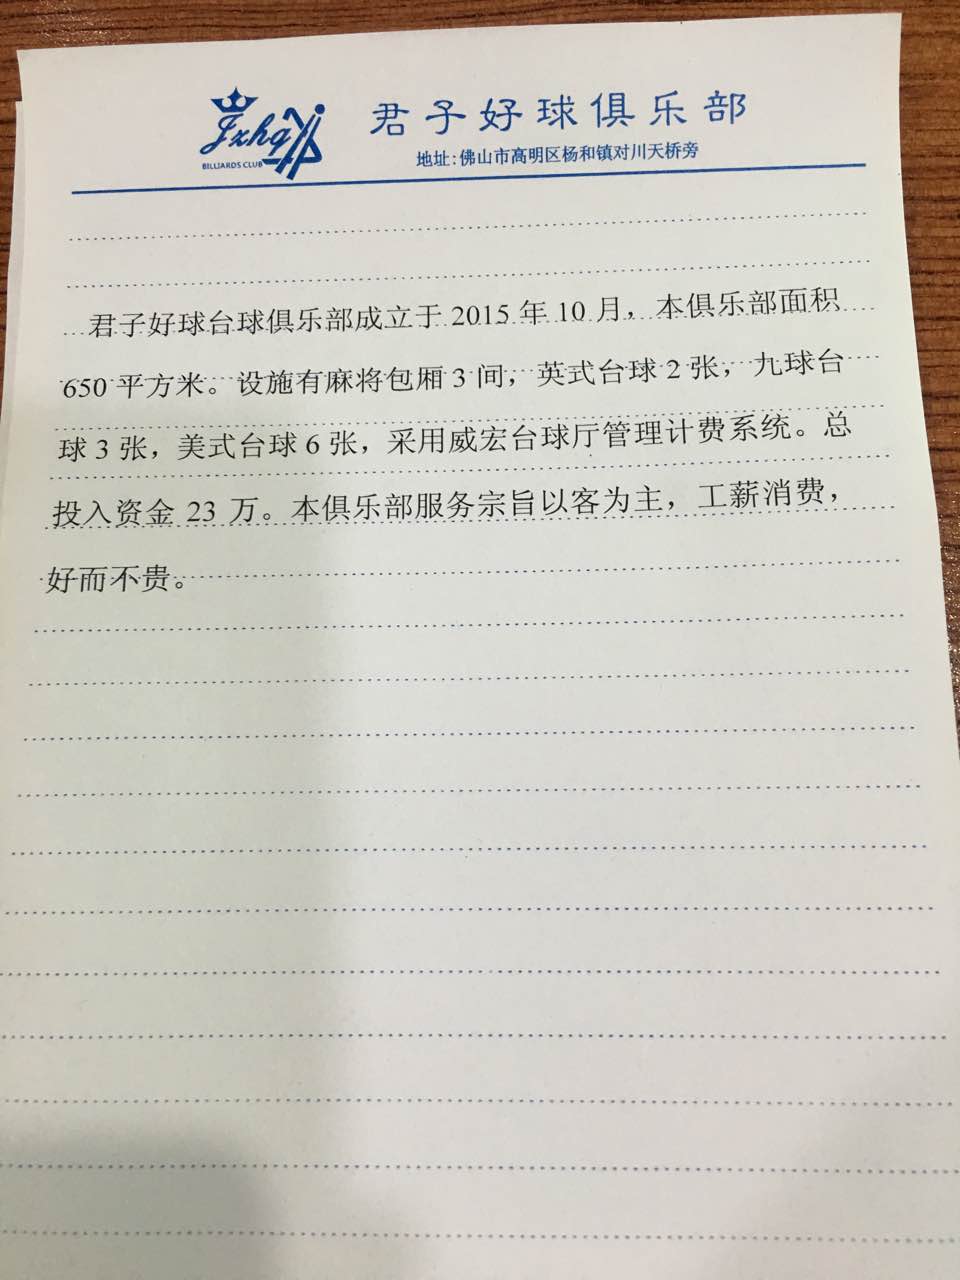 君子好球俱乐部
Jzhq
BILLIARDS CLUB
地址:佛山市高明区杨和镇对川天桥旁
君子好球台球俱乐部成立于 2015 年 10 月，本俱乐部面积
650 平方米。设施有麻将包厢 3 间，英式台球 2 张，九球台
球 3 张，美式台球 6 张，采用威宏台球厅管理计费系统。总
投入资金 23 万。本俱乐部服务宗旨以客为主，工薪消费，
好而不贵。